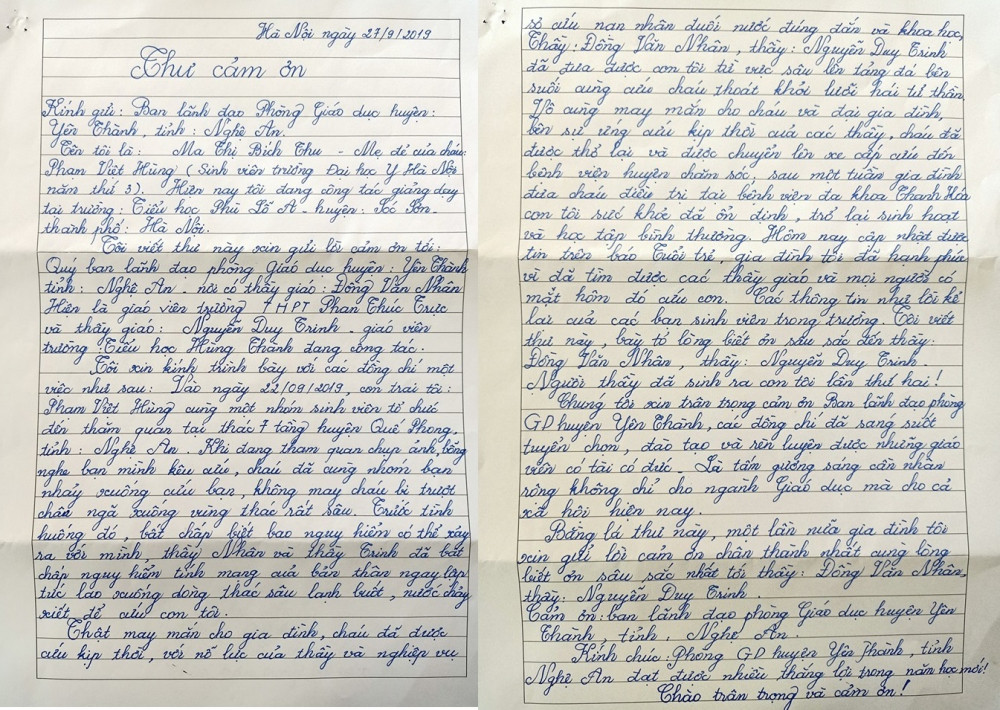 Hà Nội ngày 27/9/2019
Thư cảm ơn
Kính gửi: Ban lãnh đạo Phòng Giáo dục huyện:
Yên Thành, tỉnh: Nghệ An.
Tên tôi là: Ma Thị Bích Thu - Mẹ đẻ của cháu:
Phạm Việt Hùng (Sinh viên trường Đại học Y Hà Nội
năm thứ 3). Hiện nay tôi đang công tác giảng dạy
tại trường: Tiểu học Phù Lỗ A - huyện: Sóc Sơn -
thành phố: Hà Nội.
Tôi viết thư này xin gửi lời cảm ơn tới:
Quý ban lãnh đạo phòng Giáo dục huyện: Yên Thành
tỉnh: Nghệ An. nơi có thầy giáo: Đồng Văn Nhân
Hiện là giáo viên trường THPT Phan Thúc Trực
và thầy giáo: Nguyễn Duy Trinh - giáo viên
trường: Tiểu học Hùng Thành đang công tác.
Tôi xin kính trình bày với các đồng chí một
việc như sau: Vào ngày 22/09/2019, con trai tôi:
Phạm Việt Hùng cùng một nhóm sinh viên tổ chức
đến thăm quan tại thác 7 tầng huyện Quế Phong,
tỉnh: Nghệ An. Khi đang tham quan chụp ảnh, bỗng
nghe bạn mình kêu cứu, cháu đã cùng nhóm bạn
nhảy xuống cứu bạn, không may cháu bị trượt
chân ngã xuống vùng thác rất sâu. Trước tình
huống đó, bất chấp biết bao nguy hiểm có thể xảy
ra với mình, thầy Nhân và thầy Trinh đã bất
chấp nguy hiểm tính mạng của bản thân ngay lập
tức lao xuống dòng thác sâu lạnh buốt, nước chảy
xiết, để cứu con tôi.
Thật may mắn cho gia đình, cháu đã được
cứu kịp thời, với nỗ lực của thầy và nghiệp vụ
sơ cứu nạn nhân đuối nước đúng đắn và khoa học,
Thầy: Đồng Văn Nhân, thầy: Nguyễn Duy Trinh
đã đưa được con tôi từ vực sâu lên tảng đá bên
suối cùng cứu cháu thoát khỏi lưỡi hái tử thần.
Vô cùng may mắn cho cháu và đại gia đình,
bên sự ứng cứu kịp thời của các thầy, cháu đã
được thở lại và được chuyển lên xe cấp cứu đến
bệnh viện huyện chăm sóc, sau một tuần gia đình
đưa cháu điều trị tại bệnh viện đa khoa Thanh Hóa
con tôi sức khỏe đã ổn định, trở lại sinh hoạt
và học tập bình thường. Hôm nay cập nhật được
tin trên báo Tuổi trẻ, gia đình tôi đã hạnh phúc
vì đã tìm được các thầy giáo và mọi người có
mặt hôm đó cứu con. Các thông tin như lời kể
lại của các bạn sinh viên trong trường. Tôi viết
thư này, bày tỏ lòng biết ơn sâu sắc đến thầy:
Đồng Văn Nhân, thầy: Nguyễn Duy Trinh.
Người thầy đã sinh ra con tôi lần thứ hai!
Chúng tôi xin trân trọng cảm ơn Ban lãnh đạo phòng
GD huyện Yên Thành, các đồng chí đã sáng suốt
tuyển chọn, đào tạo và rèn luyện được những giáo
viên có tài có đức - Là tấm gương sáng cần nhân
rộng không chỉ cho ngành Giáo dục mà cho cả
xã hội hiện nay.
Bằng lá thư này, một lần nữa gia đình tôi
xin gửi lời cảm ơn chân thành nhất cùng lòng
biết ơn sâu sắc nhất tới thầy: Đồng Văn Nhân,
thầy: Nguyễn Duy Trinh.
Cảm ơn: ban lãnh đạo phòng Giáo dục huyện Yên
Thành, tỉnh, Nghệ An.
Kính chúc: Phòng GD huyện Yên Thành, tỉnh
Nghệ An đạt được nhiều thắng lợi trong năm học mới!
Chào trân trọng và cảm ơn!